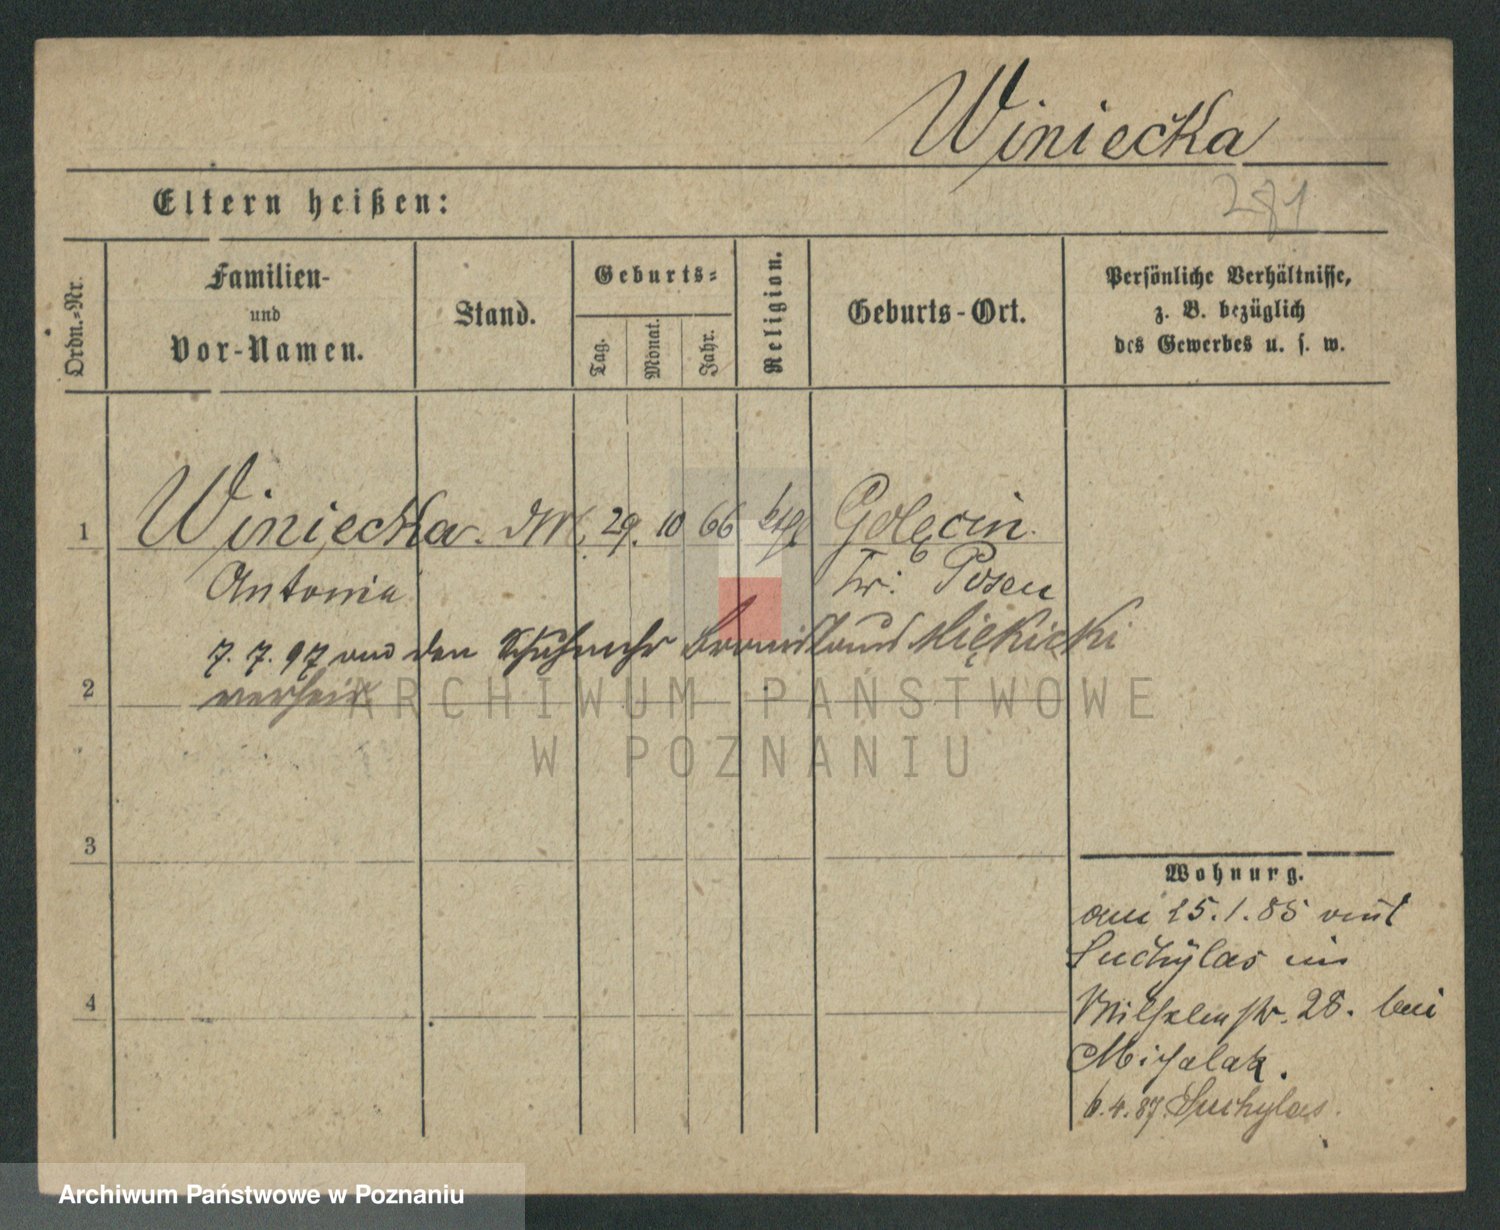 Winiecka
281
Eltern heißen:
Ordn.-Nr.
Familien-
und
Vor-Namen.
Stand.
Geburts-
Tag.
Monat.
Jahr.
Religion.
Geburts-Ort.
Persönliche Verhältnisse,
z. B. bezüglich
des Gewerbes u. s. w.
1 Winiecka. 29. 10 66 ktl Golęcin.
Antonia Kr. Posen
7. 7. 97 den Bronislaus Miękicki
2
ARCHIWUM PAŃSTWOWE
W POZNANIU
3
Wohnung.
am 25.1.85 von
Suchylas in
4 Wilhelmstr. 28. bei
Michalak.
6.4.87 Suchylas.
Archiwum Państwowe w Poznaniu